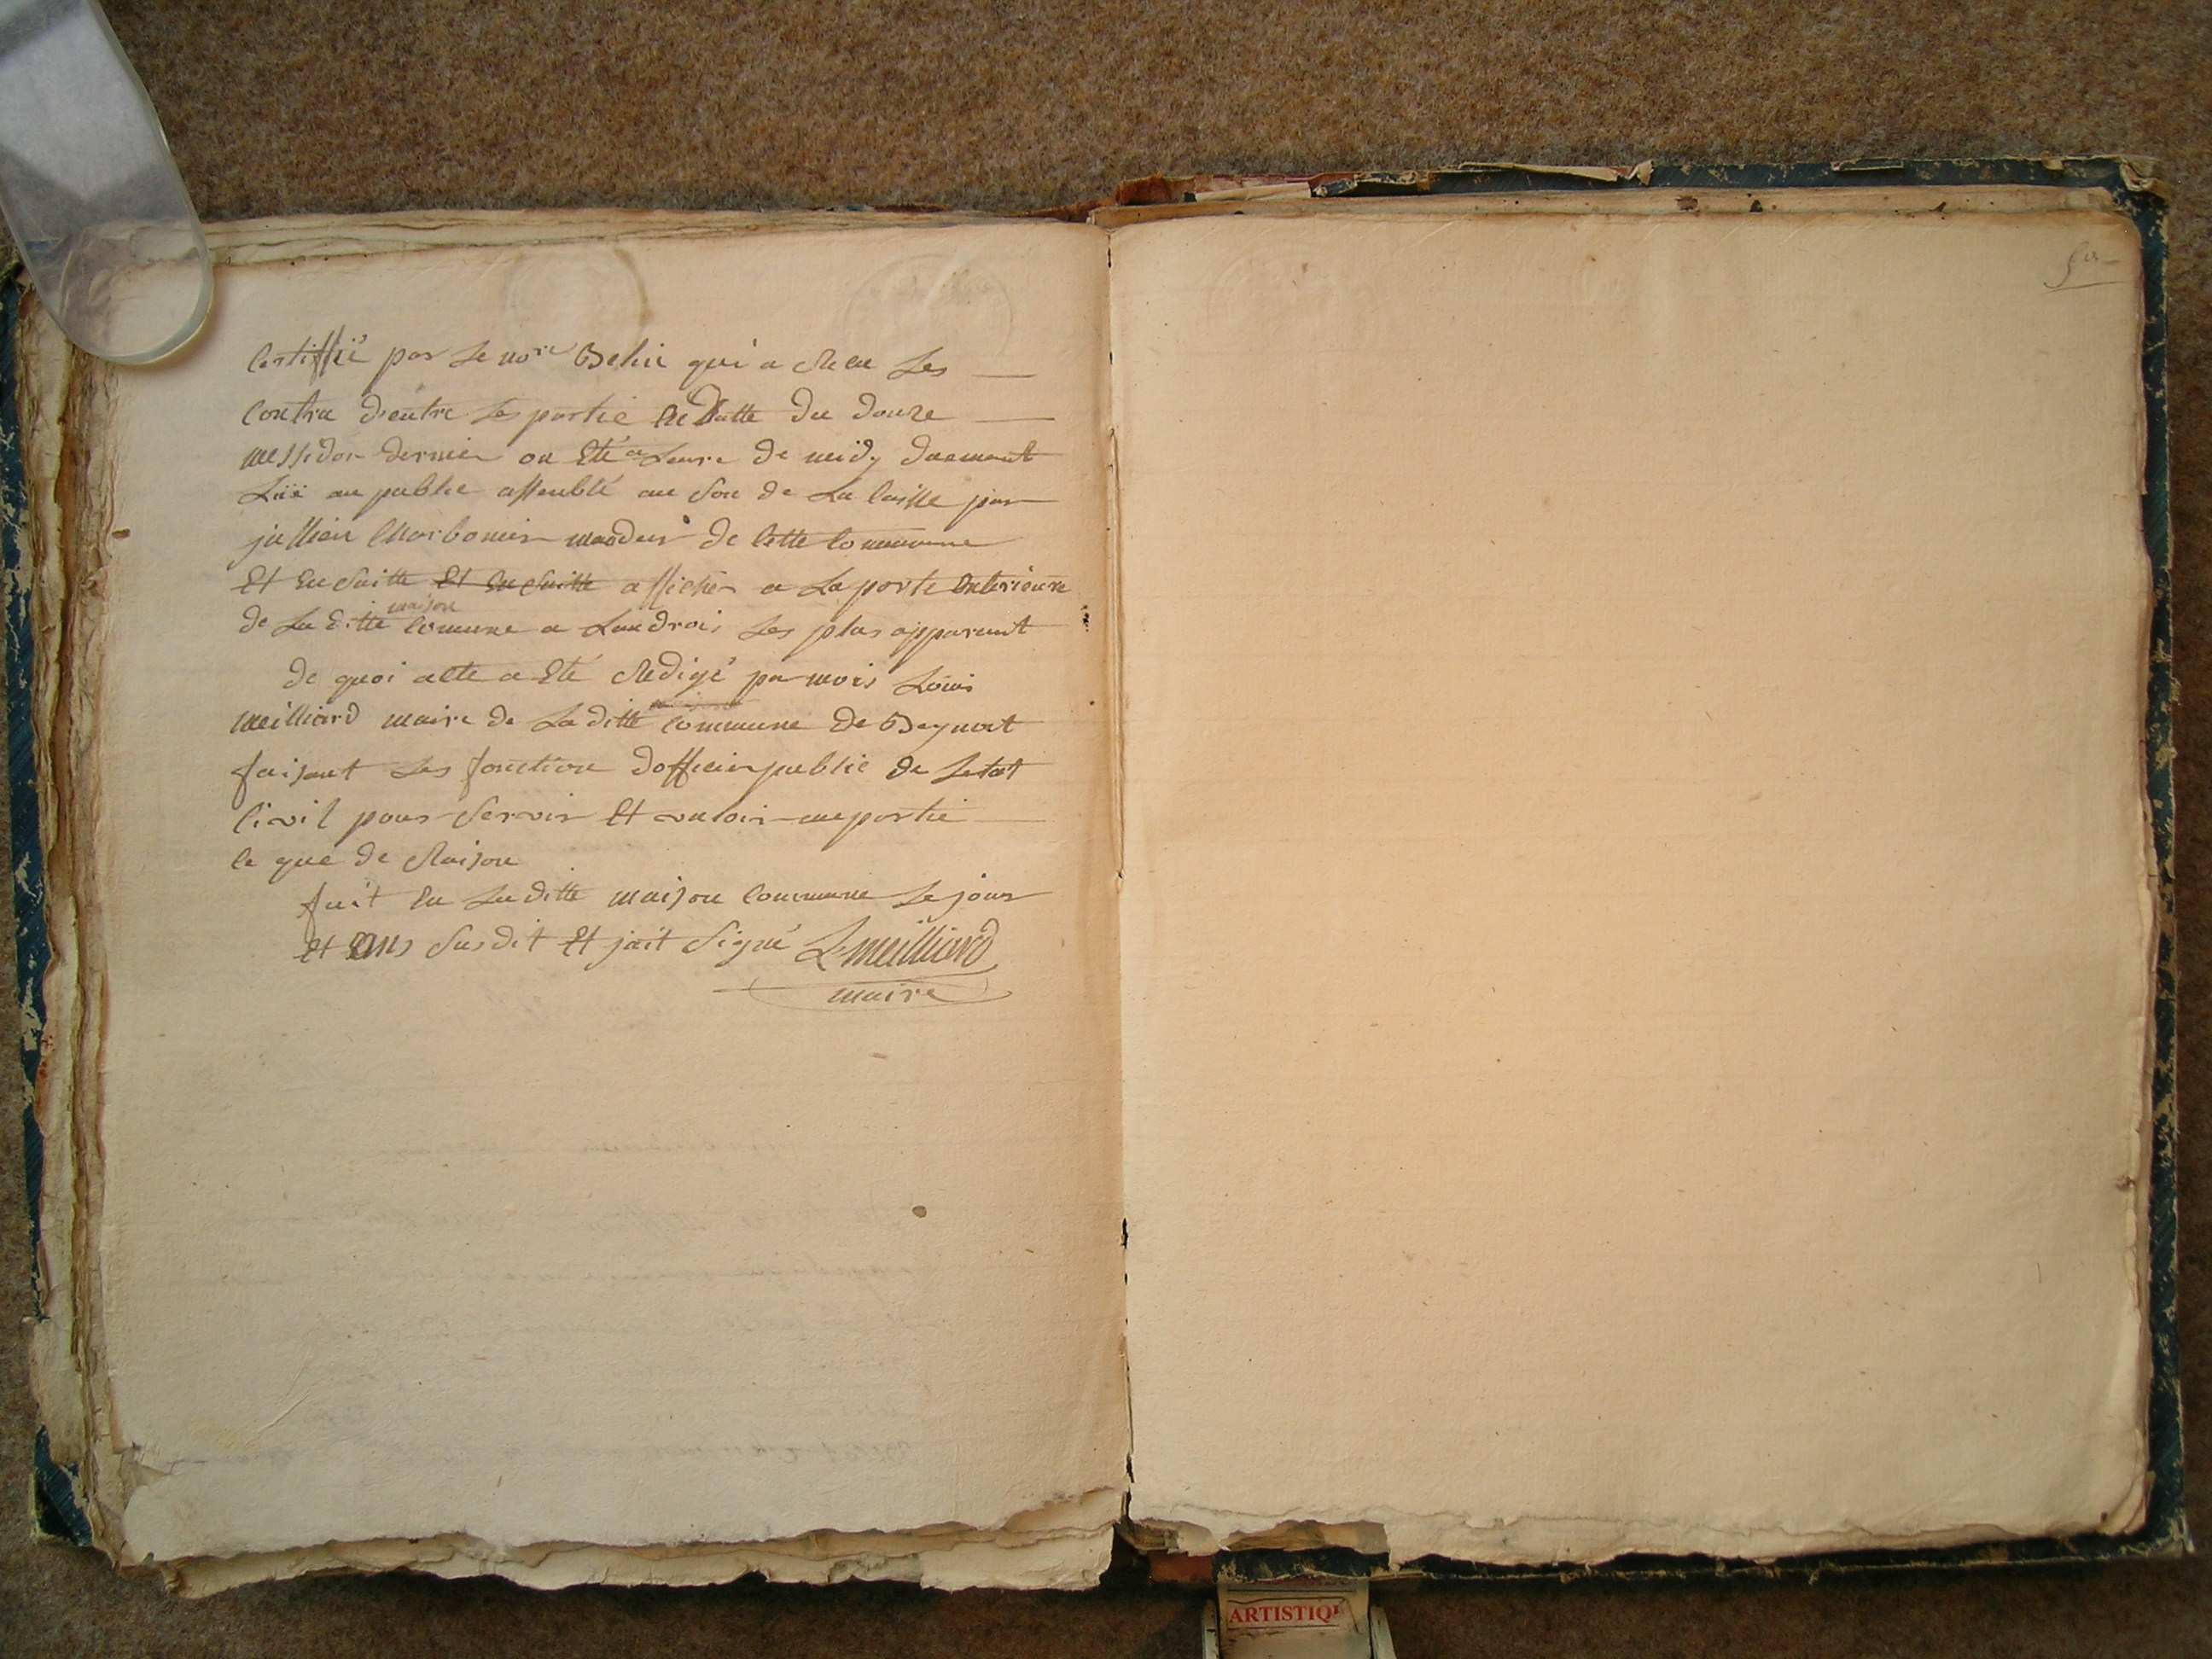 Certiffié par Le no.re Behic qui a Recu Les
Contra dentre Les partie En Datte du douze
messidor dernier on Eté a Leure de midy duement
Luë au public assemblé au Son de La Caisse par
jullien Charbonier mandeur de Cette Commune
Et En Suitte Et En Suitte afficher a La porte Exterieure
de La ditte maison Comune a Landroi Les plus apparent
de quoi acte a Eté Redigé par mois Loüis
meilliard maire de La ditte Commune de Beynost
faisant Les fonction dofficier public de Letat
Civil pour Servir Et valoir aux partie
Ce que de Raison
fait En La ditte maison Commune Le jour
Et ans Susdit Et jait Signé L. meilliard
maire
ARTISTIQ